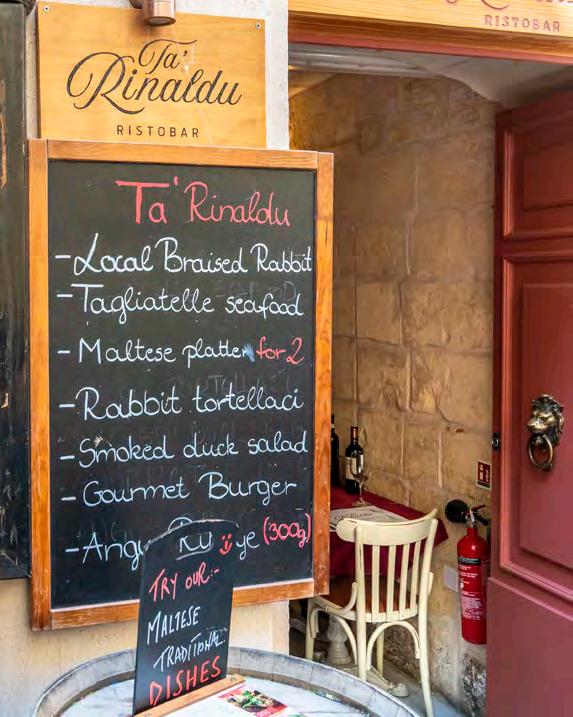 Ta'
Rinaldu
RISTOBAR
RISTOBAR
Ta' Rinaldu
- Local Braised Rabbit
- Tagliatelle seafood
- Maltese platter for 2
- Rabbit tortellaci
- Smoked duck salad
- Gourmet Burger
(300g)
TRY OUR:-
MALTESE
TRADITIONAL
DISHES